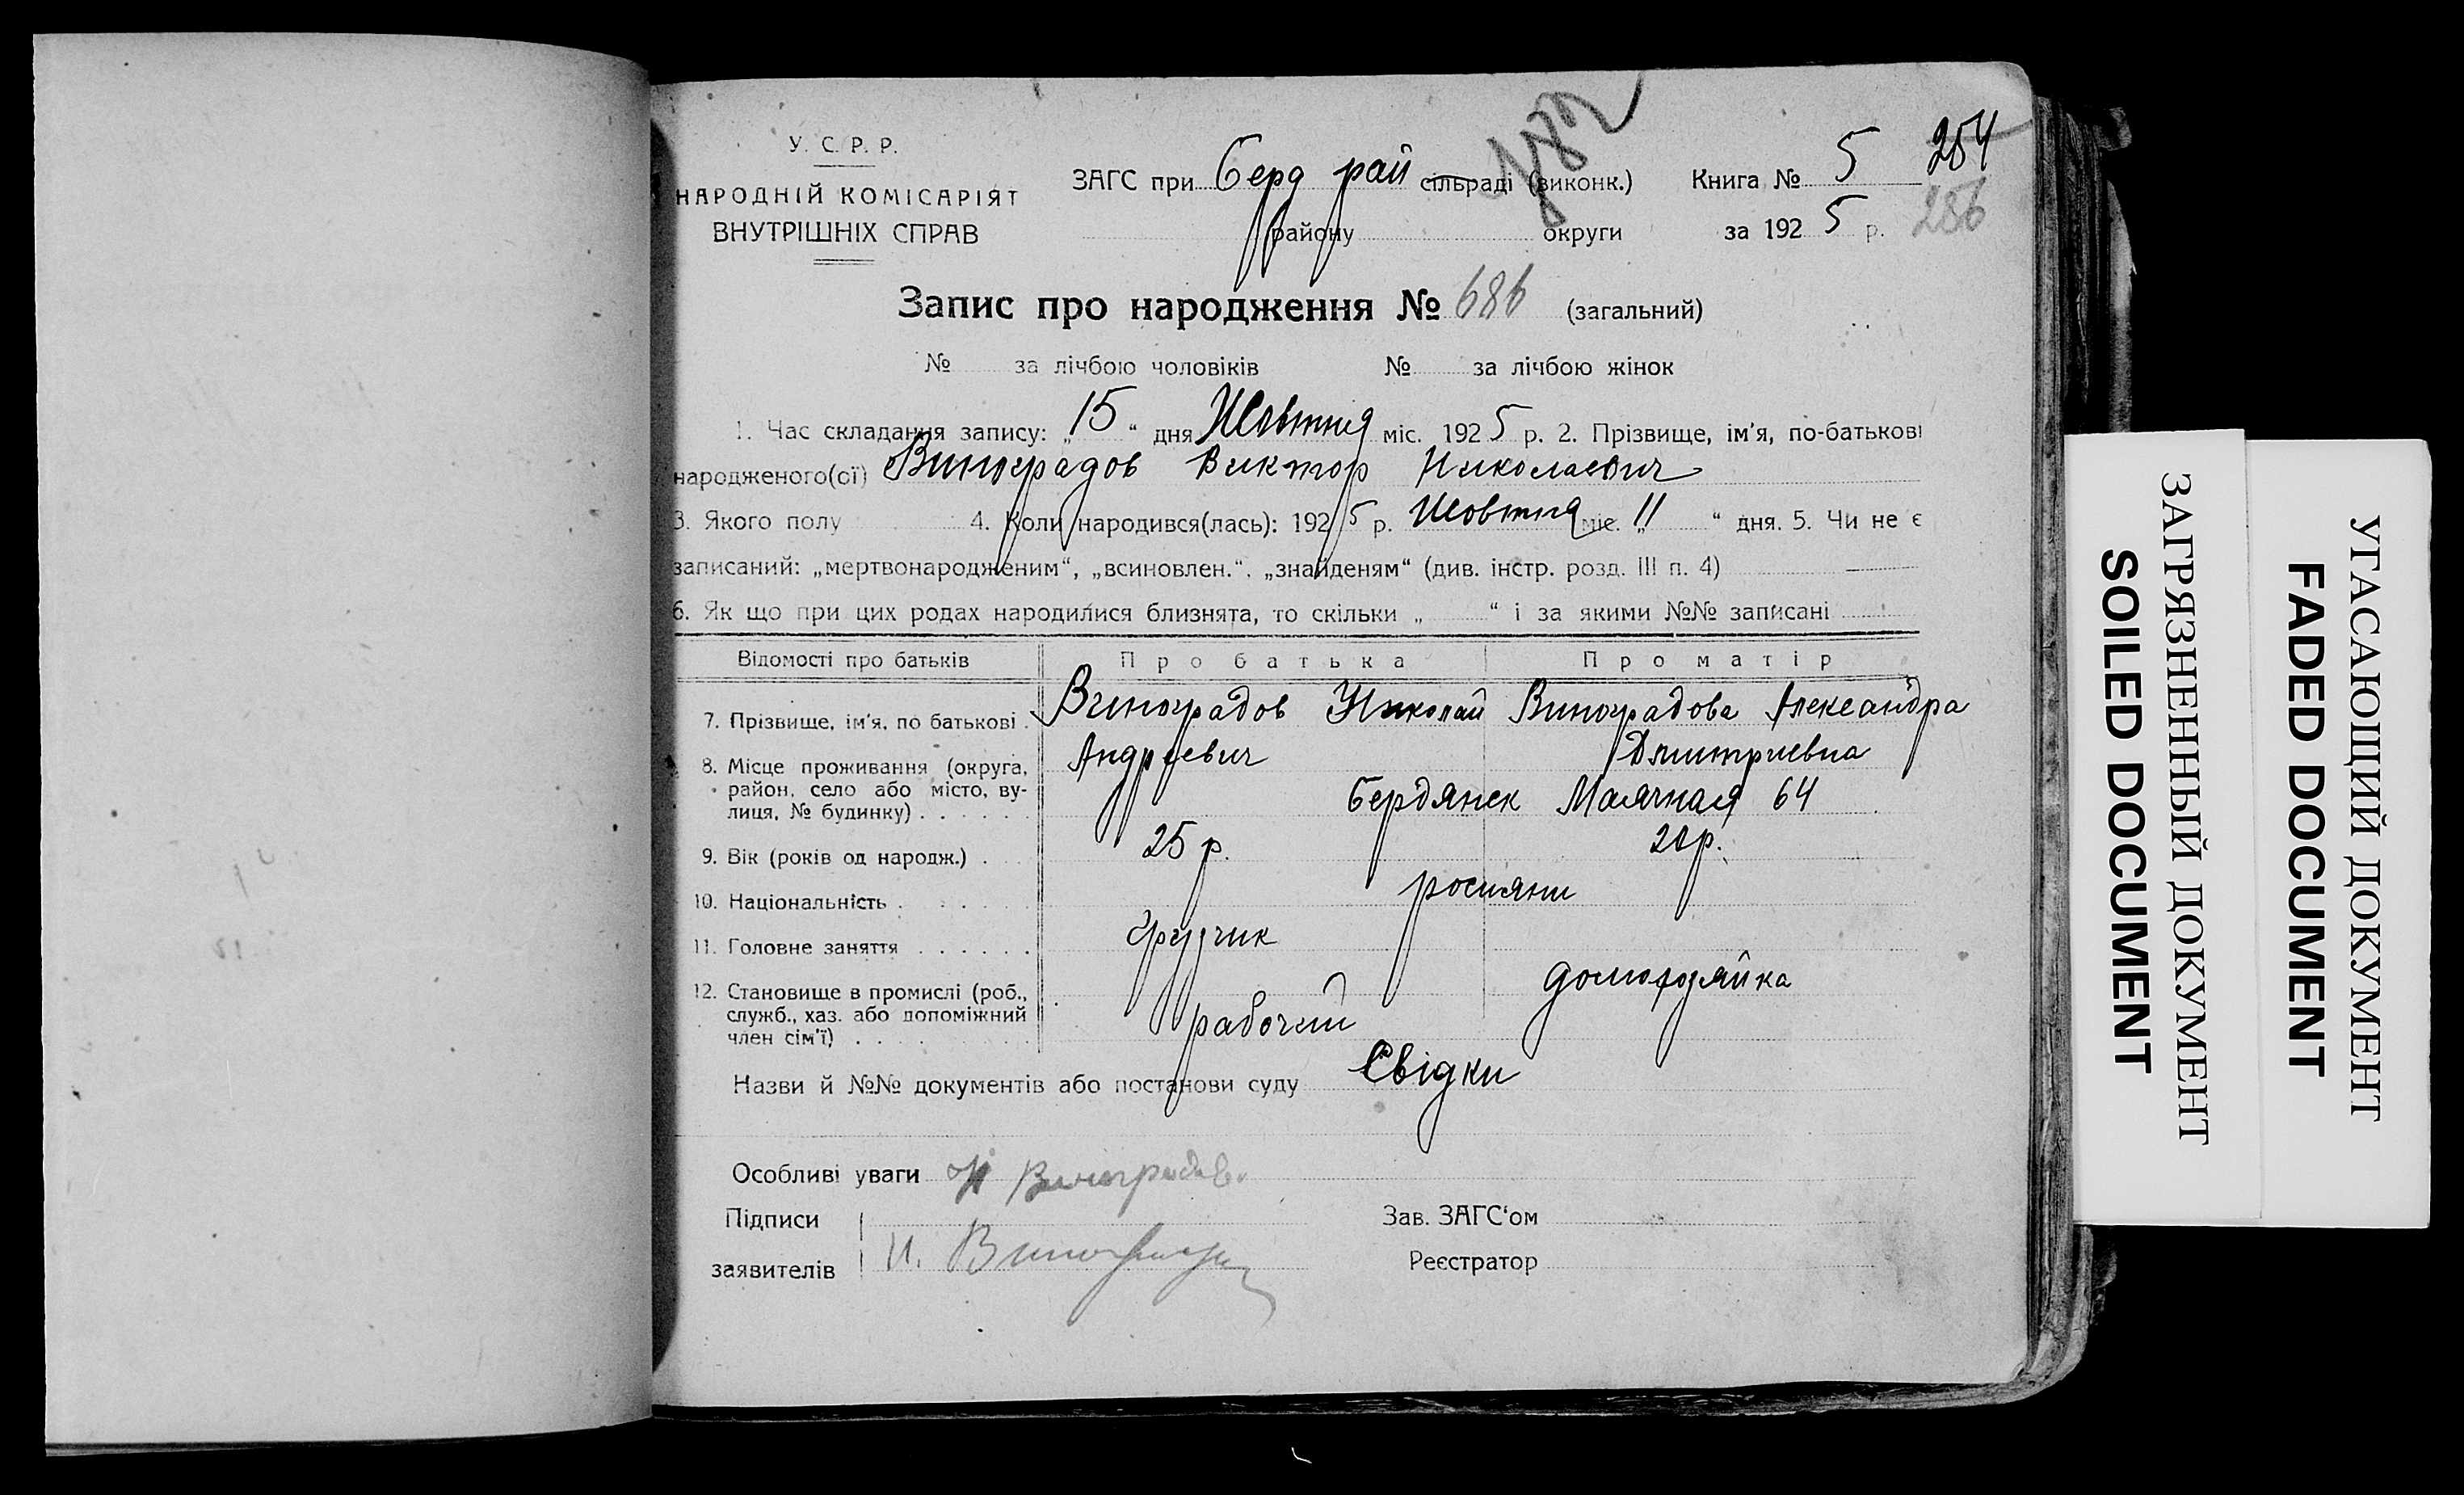 У. С. Р. Р.
НАРОДНІЙ КОМІСАРІЯТ
ВНУТРІШНІХ СПРАВ
ЗАГС при Берд рай сільраді (виконк.)
району округи
Книга № 5
за 1925 р.
254
286
Запис про народження № 686 (загальний)
№ за лічбою чоловіків № за лічбою жінок
1. Час складання запису: „15“ дня Жовтня міс. 1925 р. 2. Прізвище, ім'я, по-батькові
народженого(ої) Виноградов Виктор Николаевич
3. Якого полу 4. Коли народився(лась): 1925 р. Жовтня міс. „11“ дня. 5. Чи не є
записаний: „мертвонародженим“, „всиновлен.“, „знайденям“ (див. інстр. розд. III п. 4)
6. Як що при цих родах народилися близнята, то скільки „ “ і за якими №№ записані
Відомості про батьків Про батька Про матір
7. Прізвище, ім'я, по батькові . Виноградов Николай Виноградова Александра
Андреевич Дмитриевна
8. Місце проживання (округа,
район, село або місто, ву-
лиця, № будинку) . . . . . . Бердянск Маячная 64
9. Вік (років од народж.) . 25 р. 20 р.
10. Національність . . . . . росияни
11. Головне заняття . . . . . .
домохозяйка
12. Становище в промислі (роб.,
служб., хаз. або допоміжний
член сім'ї) . . . . рабочий
Назви й №№ документів або постанови суду Свідки
Особливі уваги Н Виноградов.
Підписи
заявителів Н.
Зав. ЗАГС'ом
Реєстратор
ЗАГРЯЗНЕННЫЙ ДОКУМЕНТ
SOILED DOCUMENT
УГАСАЮЩИЙ ДОКУМЕНТ
FADED DOCUMENT